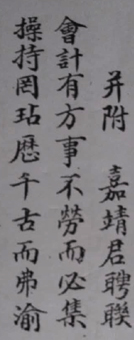 并附　嘉靖君聘聨
會計有方事不勞而必集
操持罔玷厯千古而弗渝